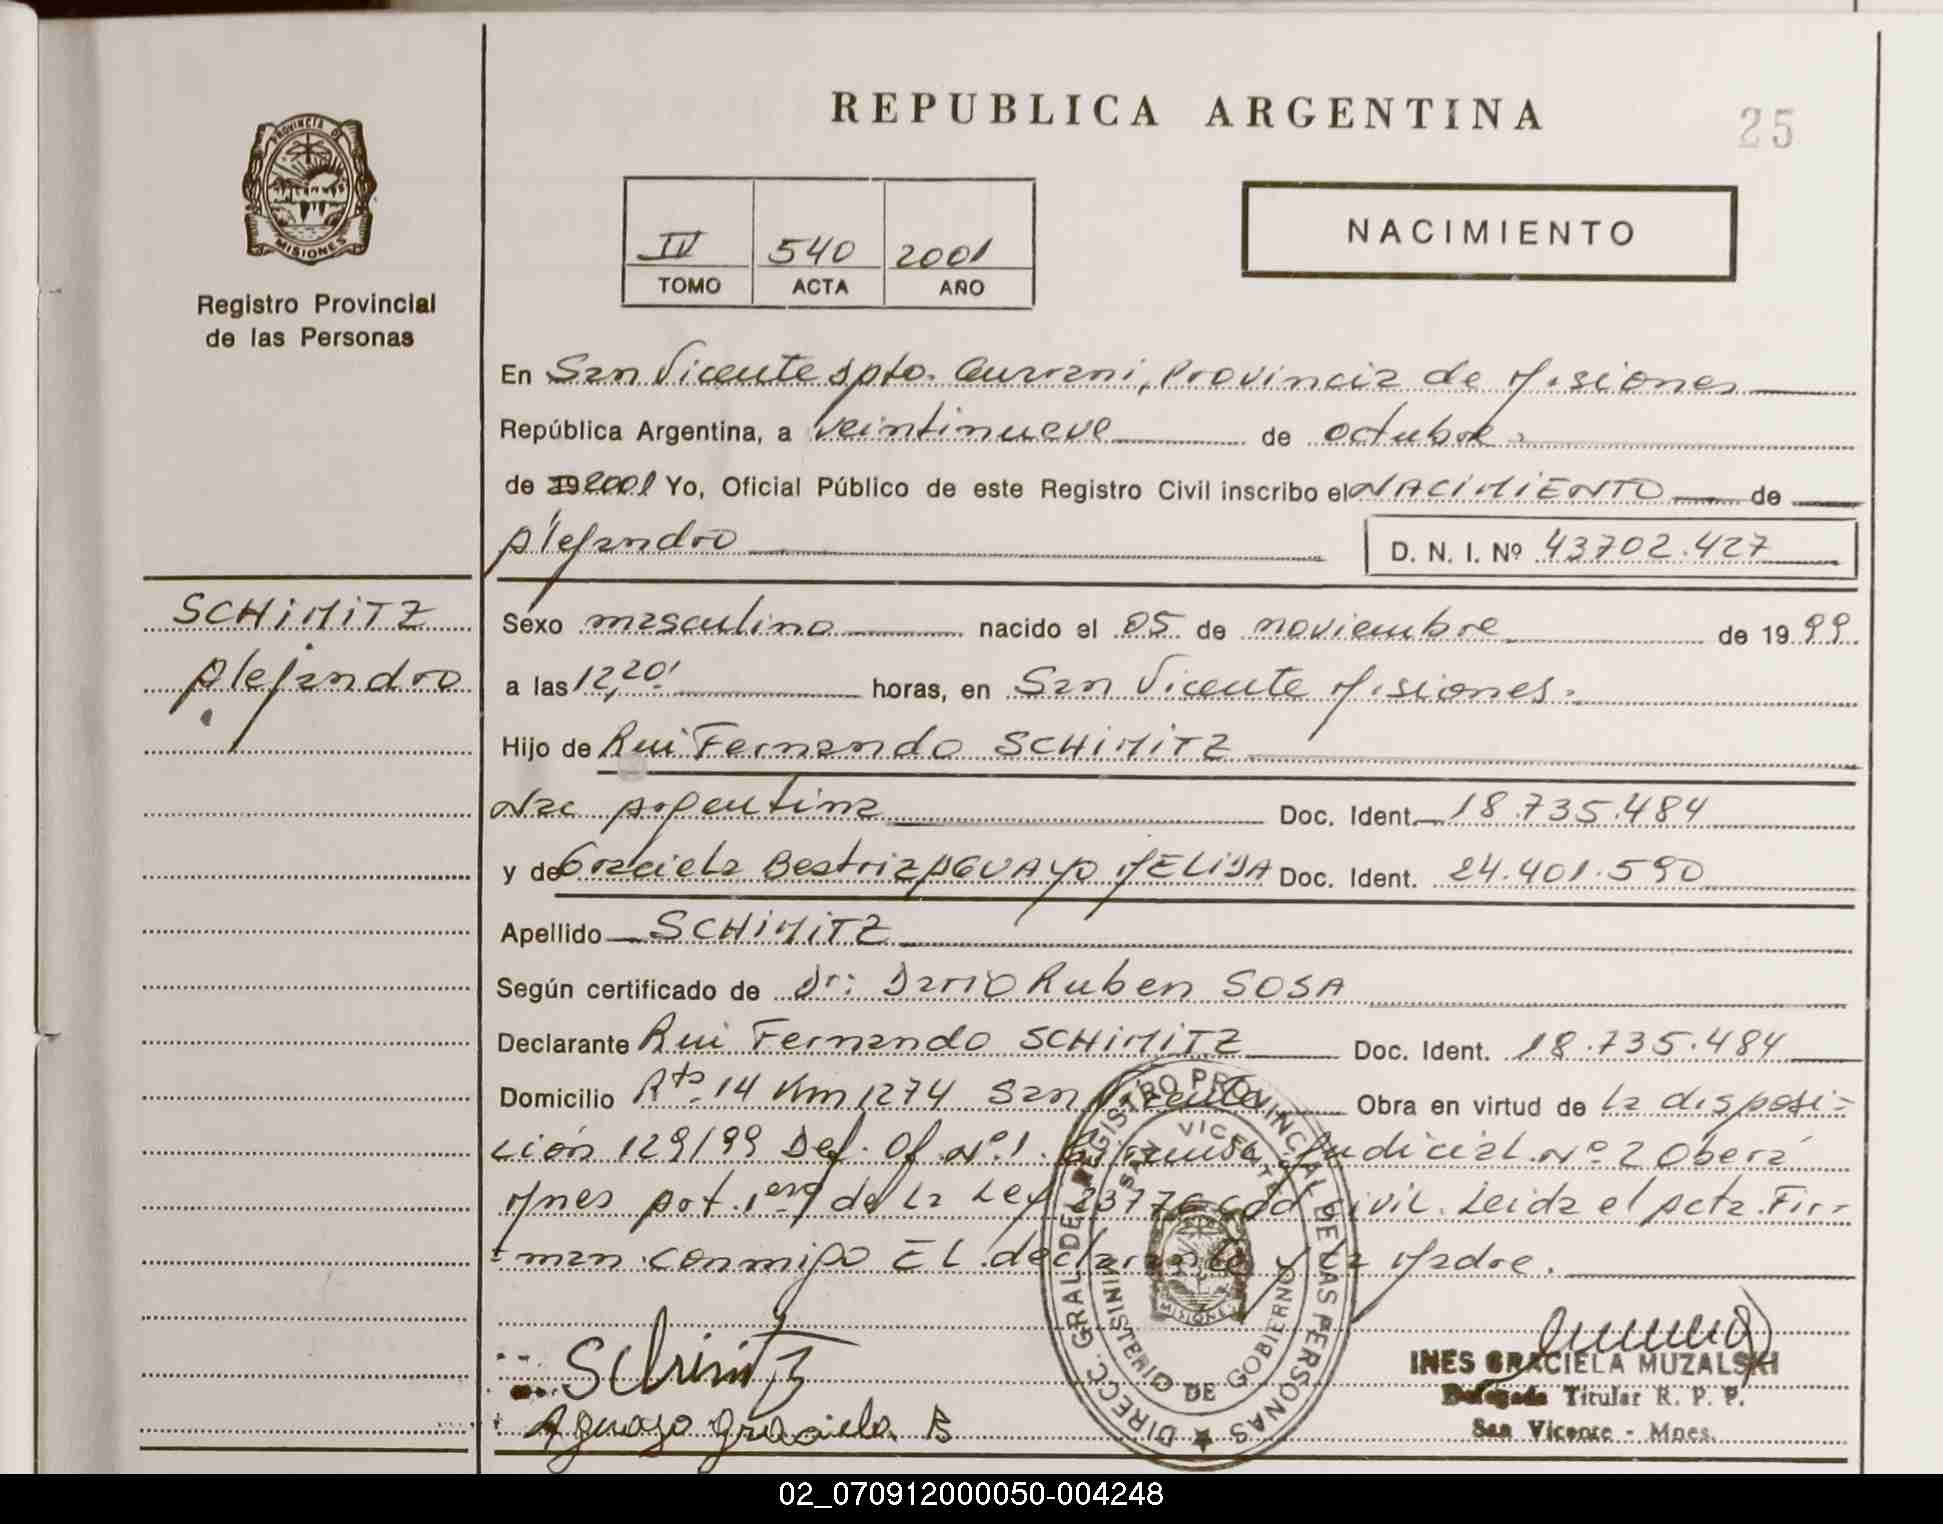 REPUBLICA ARGENTINA
25
PROVINCIA DE
MISIONES
Registro Provincial
de las Personas
IV 540 2001
TOMO ACTA AÑO
NACIMIENTO
En San Vicente Dpto. Guarani, Provincia de Misiones
República Argentina, a veintinueve de octubre
de 19 2001 Yo, Oficial Público de este Registro Civil inscribo el NACIMIENTO de
Alejandro D. N. I. Nº 43702.427
SCHIMITZ
Alejandro
Sexo masculino nacido el 05 de noviembre de 1999
a las 12,20' horas, en San Vicente Misiones.
Hijo de Rui Fernando SCHIMITZ
Nac Argentina Doc. Ident. 18.735.484
y de Graciela Beatriz AGUAYO MELIDA Doc. Ident. 24.401.590
Apellido SCHIMITZ
Según certificado de Dr: Dario Ruben SOSA
Declarante Rui Fernando SCHIMITZ Doc. Ident. 18.735.484
Domicilio Rta. 14 Km 1274 San Vicente Obra en virtud de la disposi-
ción 129/99 Def. Of. Nº 1. Judicial Nº 2 Obera
Mnes Art. 1ero de la Ley 23776 Cod Civil. Leida el Acta. Fir-
-man conmigo EL declarante y la Madre.
DIRECC. GRAL. DEL REGISTRO PROVINCIAL DE LAS PERSONAS
SAN VICENTE
MISIONES
MINISTERIO DE GOBIERNO
Schimitz
Aguayo Graciela B
INES GRACIELA MUZALSKI
Delegada Titular R. P. P.
San Vicente - Mnes.
02_070912000050-004248